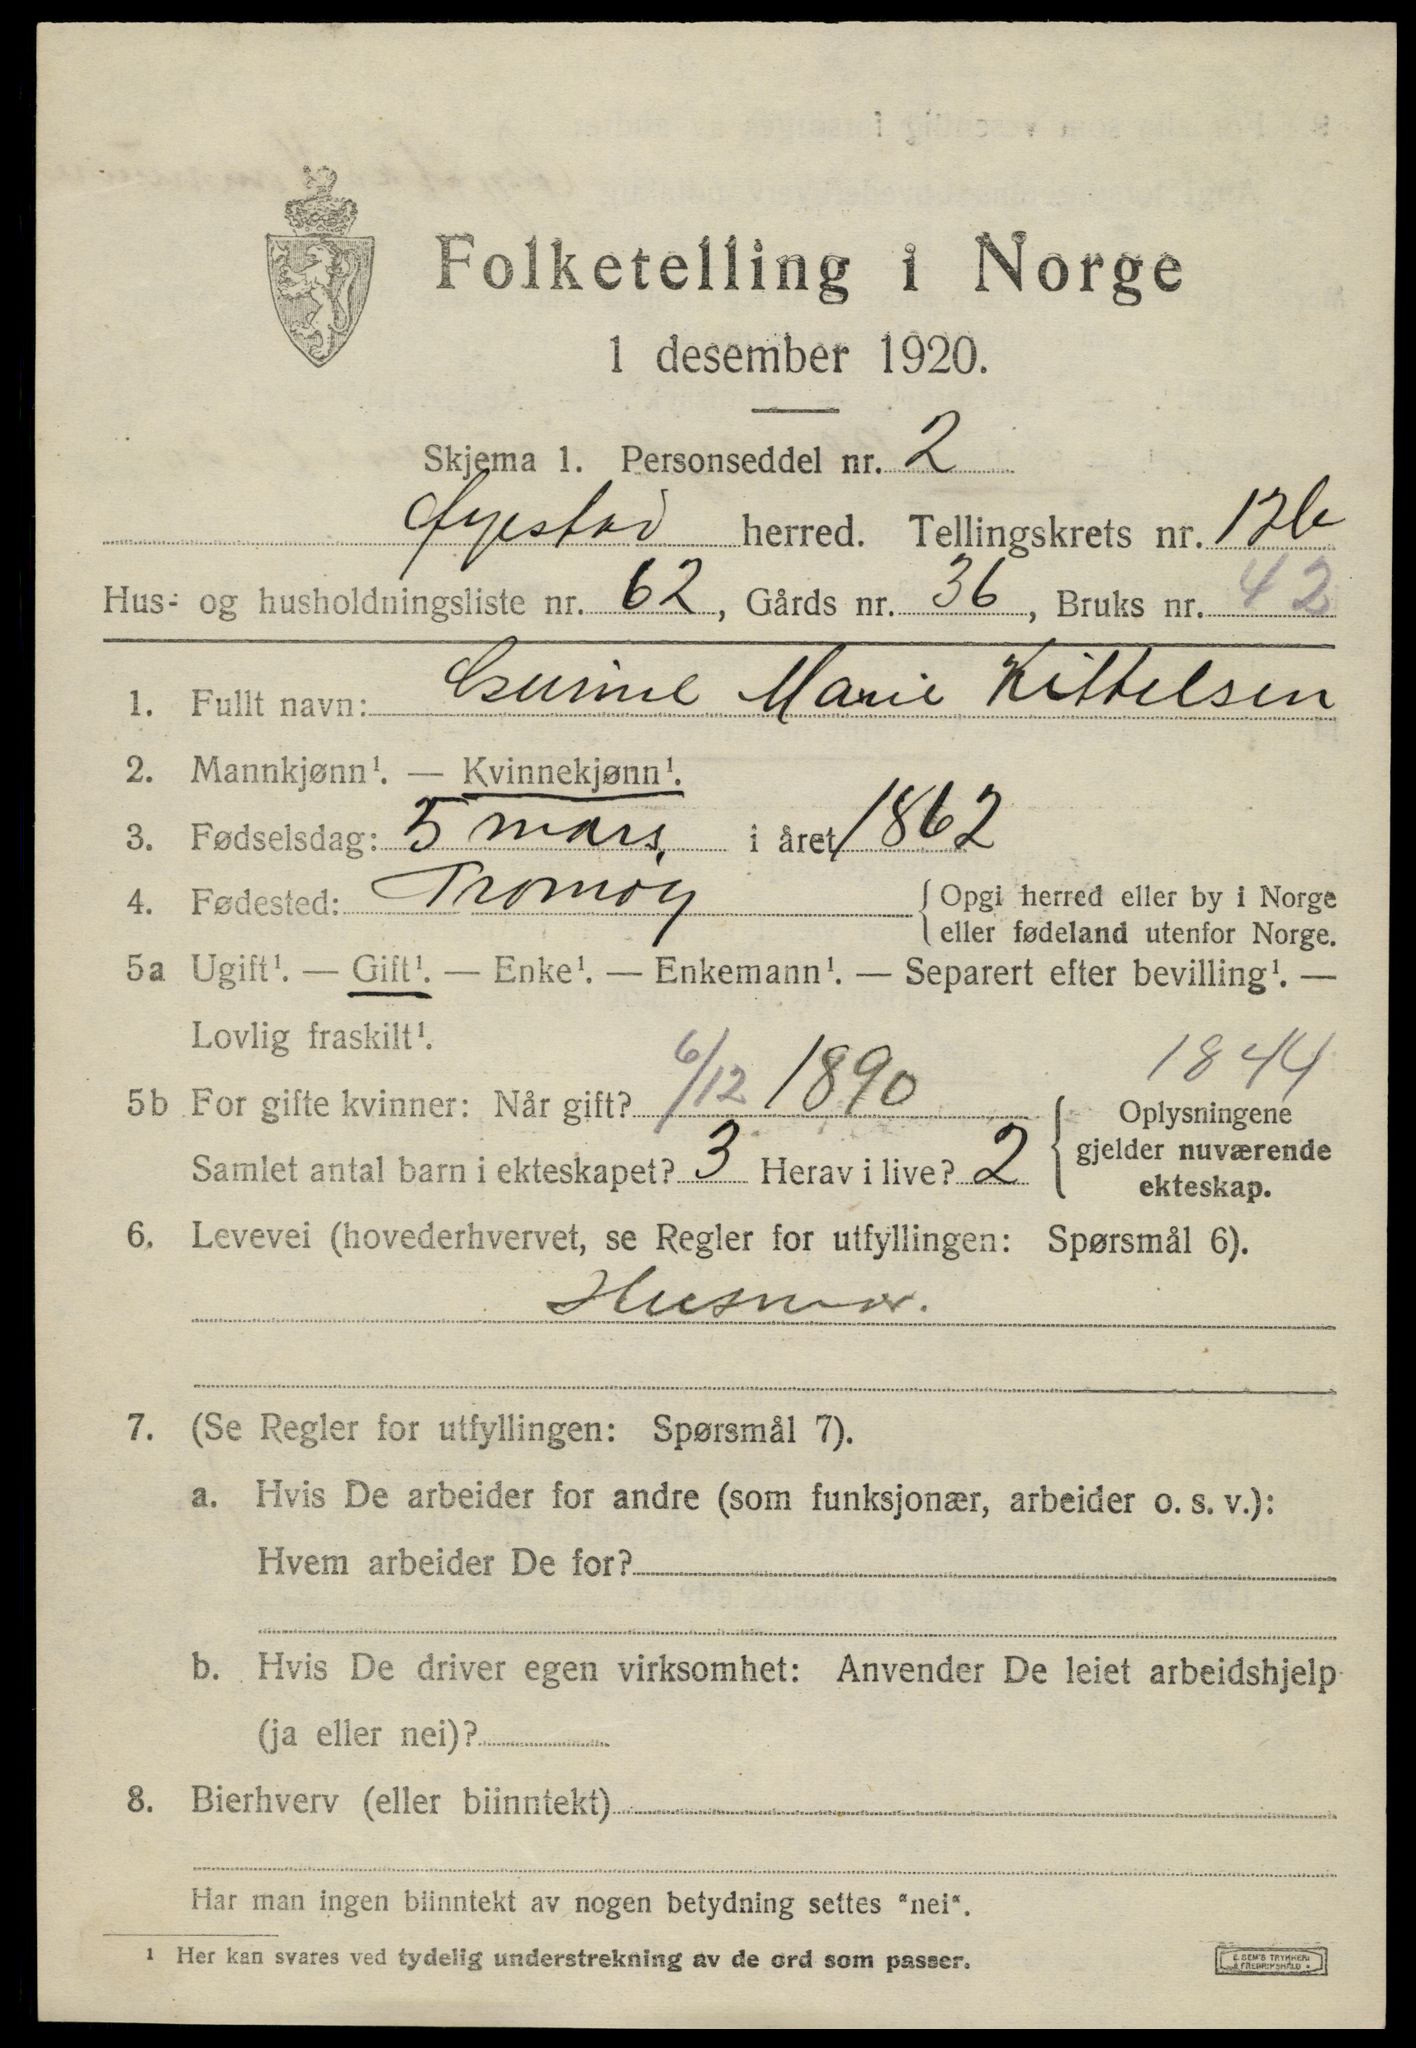 Folketelling i Norge
1 desember 1920.
Skjema 1. Personseddel nr. 2
Øyestad herred. Tellingskrets nr. 12b
Hus- og husholdningsliste nr. 62, Gårds nr. 36, Bruks nr. 42
1. Fullt navn: Gurine Marie Kittelsen
2. Mannkjønn¹. — Kvinnekjønn¹.
3. Fødselsdag: 5 mars. i året 1862
4. Fødested: Tromøy { Opgi herred eller by i Norge
eller fødeland utenfor Norge.
5a Ugift¹. — Gift¹. — Enke¹. — Enkemann¹. — Separert efter bevilling¹. —
Lovlig fraskilt¹.
1844
5b For gifte kvinner: Når gift? 6/12 1890 { Oplysningene
gjelder nuværende
ekteskap.
Samlet antal barn i ekteskapet? 3 Herav i live? 2
6. Levevei (hovederhvervet, se Regler for utfyllingen: Spørsmål 6).
Husmor.
7. (Se Regler for utfyllingen: Spørsmål 7).
a. Hvis De arbeider for andre (som funksjonær, arbeider o. s. v.):
Hvem arbeider De for?
b. Hvis De driver egen virksomhet: Anvender De leiet arbeidshjelp
(ja eller nei)?
8. Bierhverv (eller biinntekt)
Har man ingen biinntekt av nogen betydning settes "nei".
¹ Her kan svares ved tydelig understrekning av de ord som passer.
E. SEM'S TRYKKERI
FREDRIKSHALD